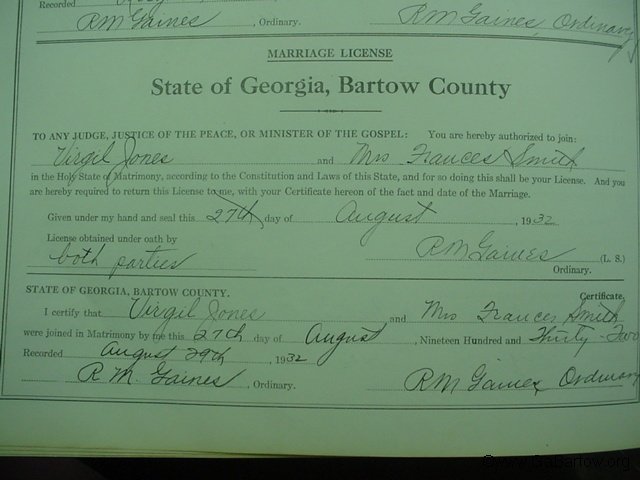 Recorded
RM Gaines, Ordinary. RM Gaines, Ordinary
MARRIAGE LICENSE
State of Georgia, Bartow County
TO ANY JUDGE, JUSTICE OF THE PEACE, OR MINISTER OF THE GOSPEL: You are hereby authorized to join:
Virgil Jones and Mrs Frances Smith
in the Holy State of Matrimony, according to the Constitution and Laws of this State, and for so doing this shall be your License. And you
are hereby required to return this License to me, with your Certificate hereon of the fact and date of the Marriage.
Given under my hand and seal this 27th day of August, 1932
License obtained under oath by
both parties RM Gaines (L. S.)
Ordinary.
STATE OF GEORGIA, BARTOW COUNTY. Certificate.
I certify that Virgil Jones and Mrs Frances Smith
were joined in Matrimony by me this 27th day of August, Nineteen Hundred and Thirty-Two
Recorded August 29th, 1932
R. M. Gaines, Ordinary. RM Gaines Ordinary